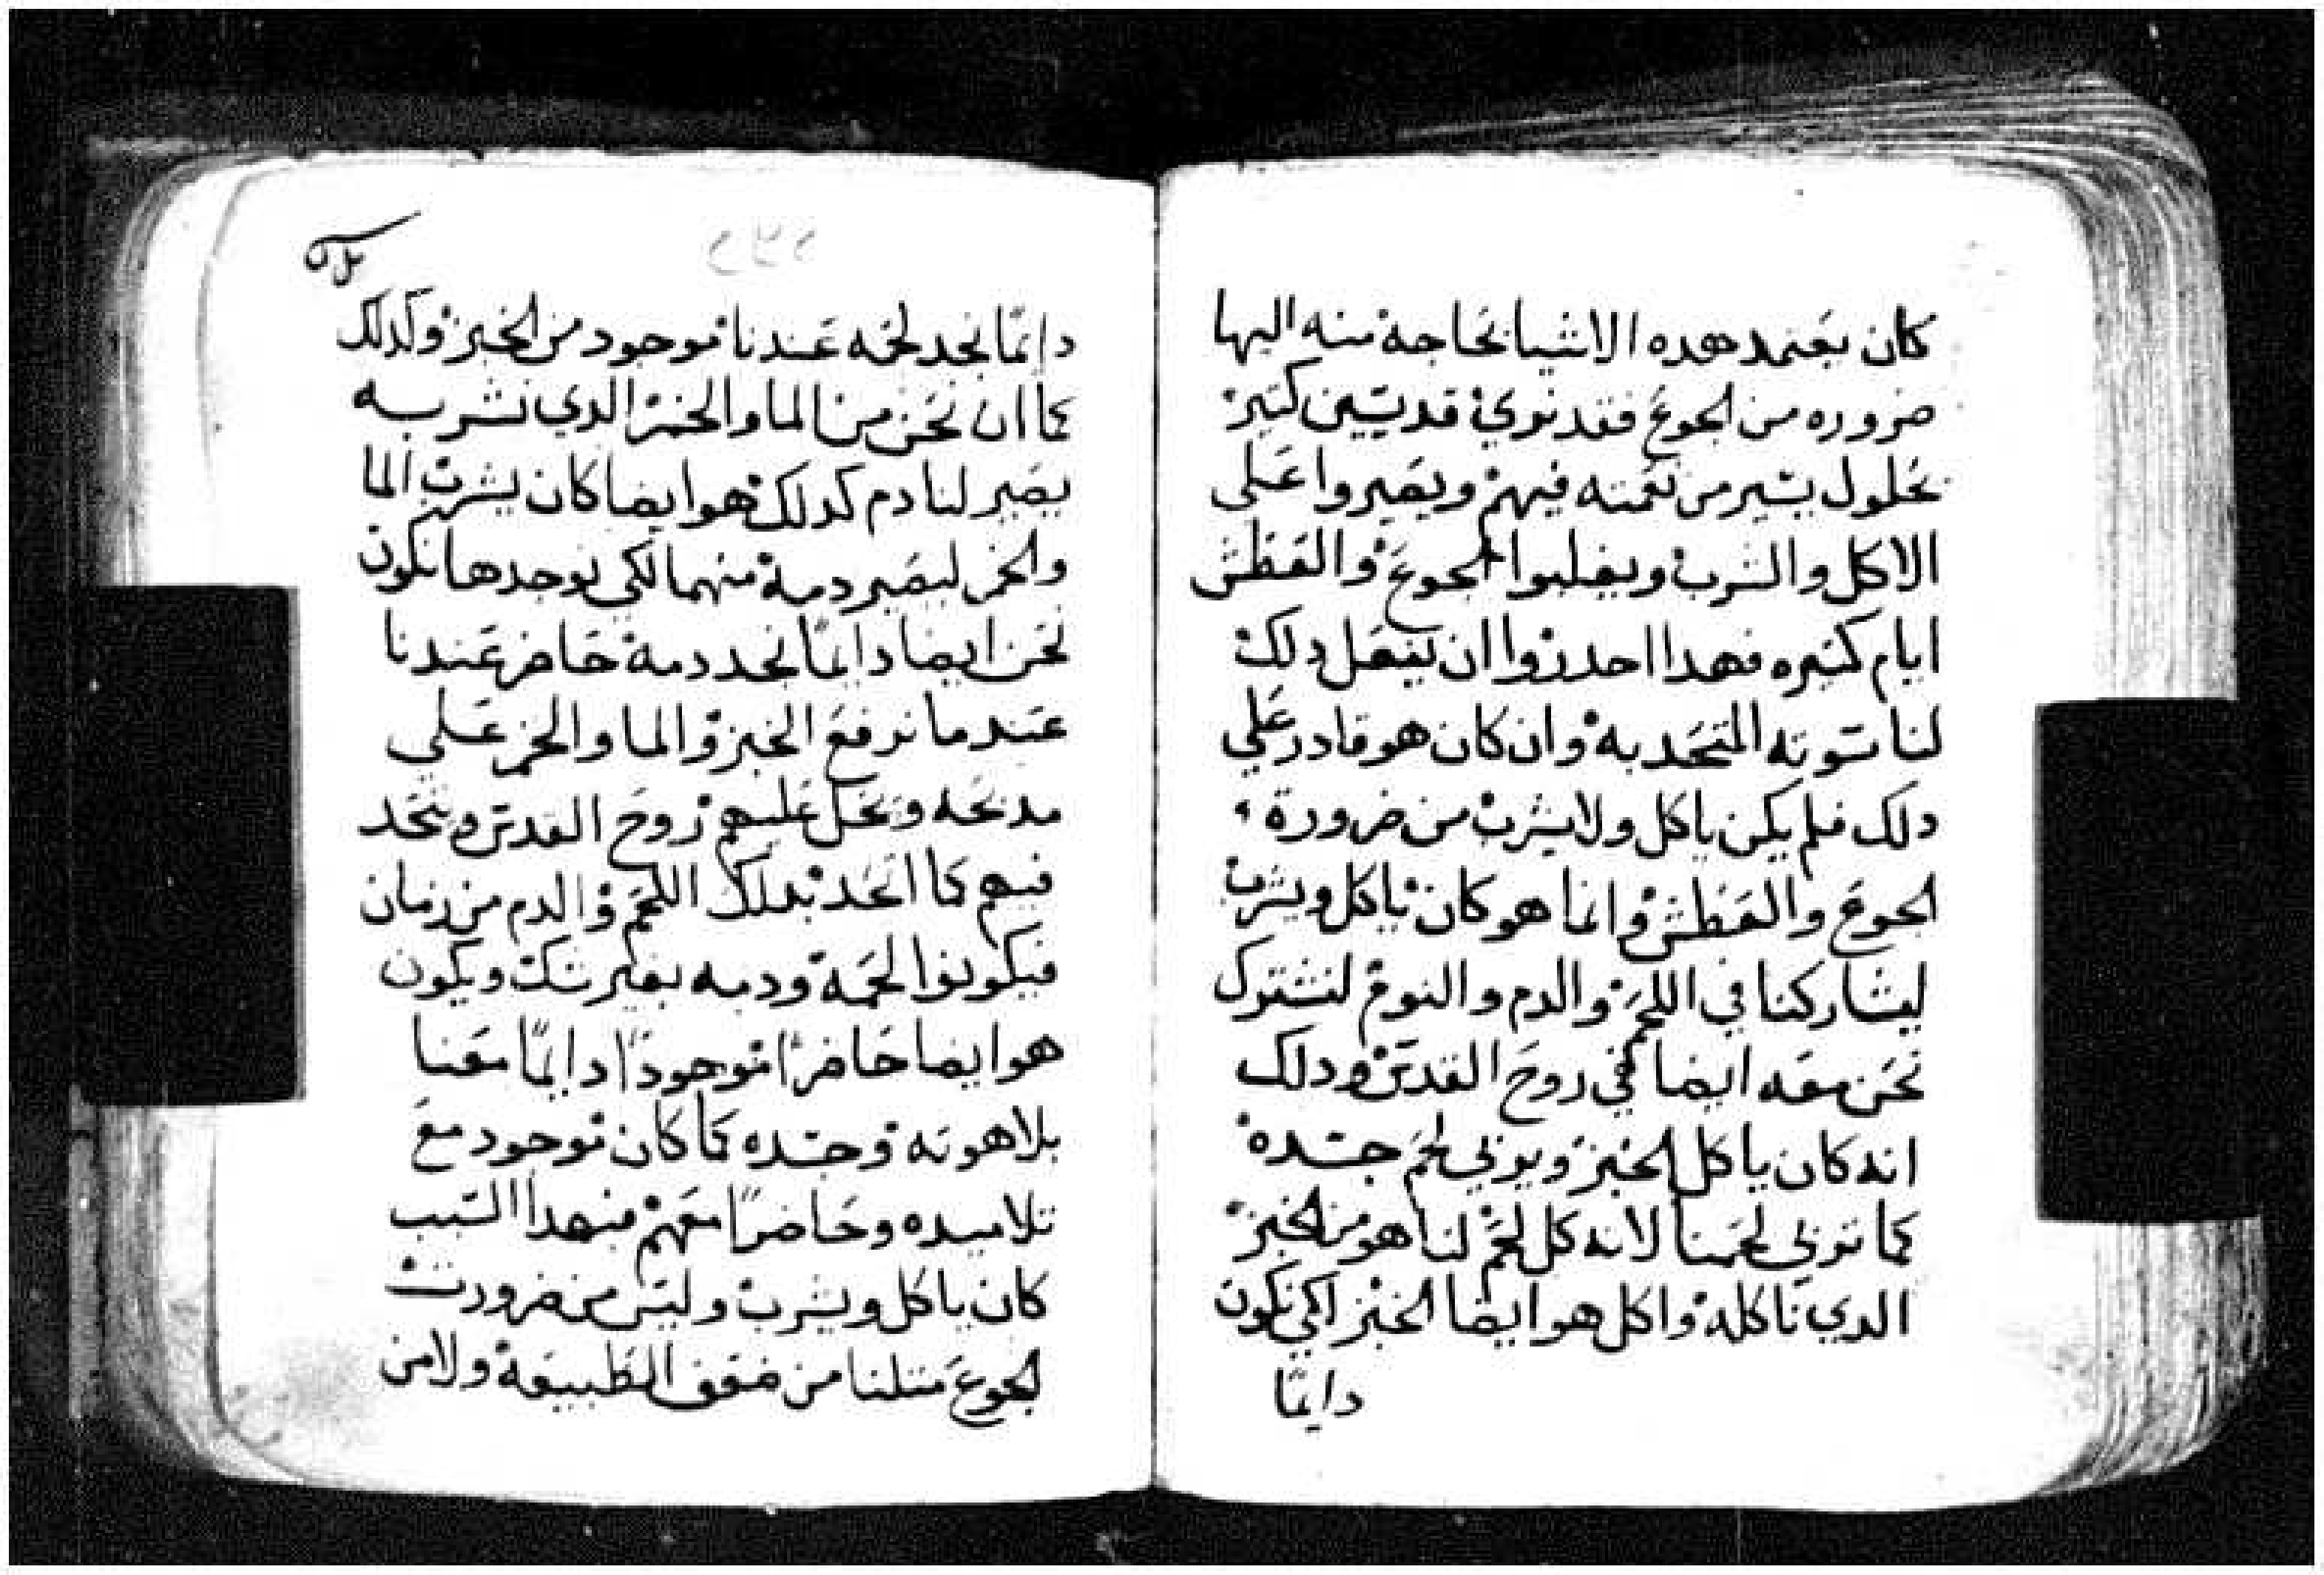 كان يعتمد هده الاشيا بحاجة منه اليها
ضروره من الجوع فقد نري قديسين كتير
بحلول يسير من نعمته فيهم ويصيروا على
الاكل والشرب ويغلبوا الجوع والعطش
ايام كتيره فهدا احدروا ان يفعل دلك
لناسوته المتحد به وان كان هو قادر علي
دلك فلم يكن ياكل ولا يشرب من ضرورة
الجوع والعطش وانما هو كان ياكل ويشرب
ليشاركنا في اللحم والدم والنوع لنشترك
نحن معه ايضا في روح القدس ودلك
انه كان ياكل الخبز ويربي لحم جسده
كما نربي لحمنا لانه كل لحم لنا هو من الخبز
الدي ناكله واكل هو ايضا الخبز لكي نكون
دايمًا
دايمًا نجد لحمه عندنا موجود من الخبز وكدلك
كما ان نحن من الما والخمر الدي نشربه
يصير لنا دم كدلك هو ايضا كان يشرب الما
والخمر ليصير دمه منهما لكي نوجدها نكون
نحن ايضا دايمًا نجد دمه حاضر عندنا
عندما نرفع الخبز والما والخمر علي
مدبحه ويحل عليهم روح القدس ويتحد
فيهم كما اتحد بدلك اللحم والدم من زمان
فيكونوا لحمه ودمه بغير شك ويكون
هو ايضا حاضرًا موجودًا دايمًا معنا
بلاهوته وجسده كما كان موجود مع
تلاميده وحاضرًا معهم فبهدا السبب
كان ياكل ويشرب وليس من ضرورت
الجوع متلنا من ضعف الطبيعة ولا من